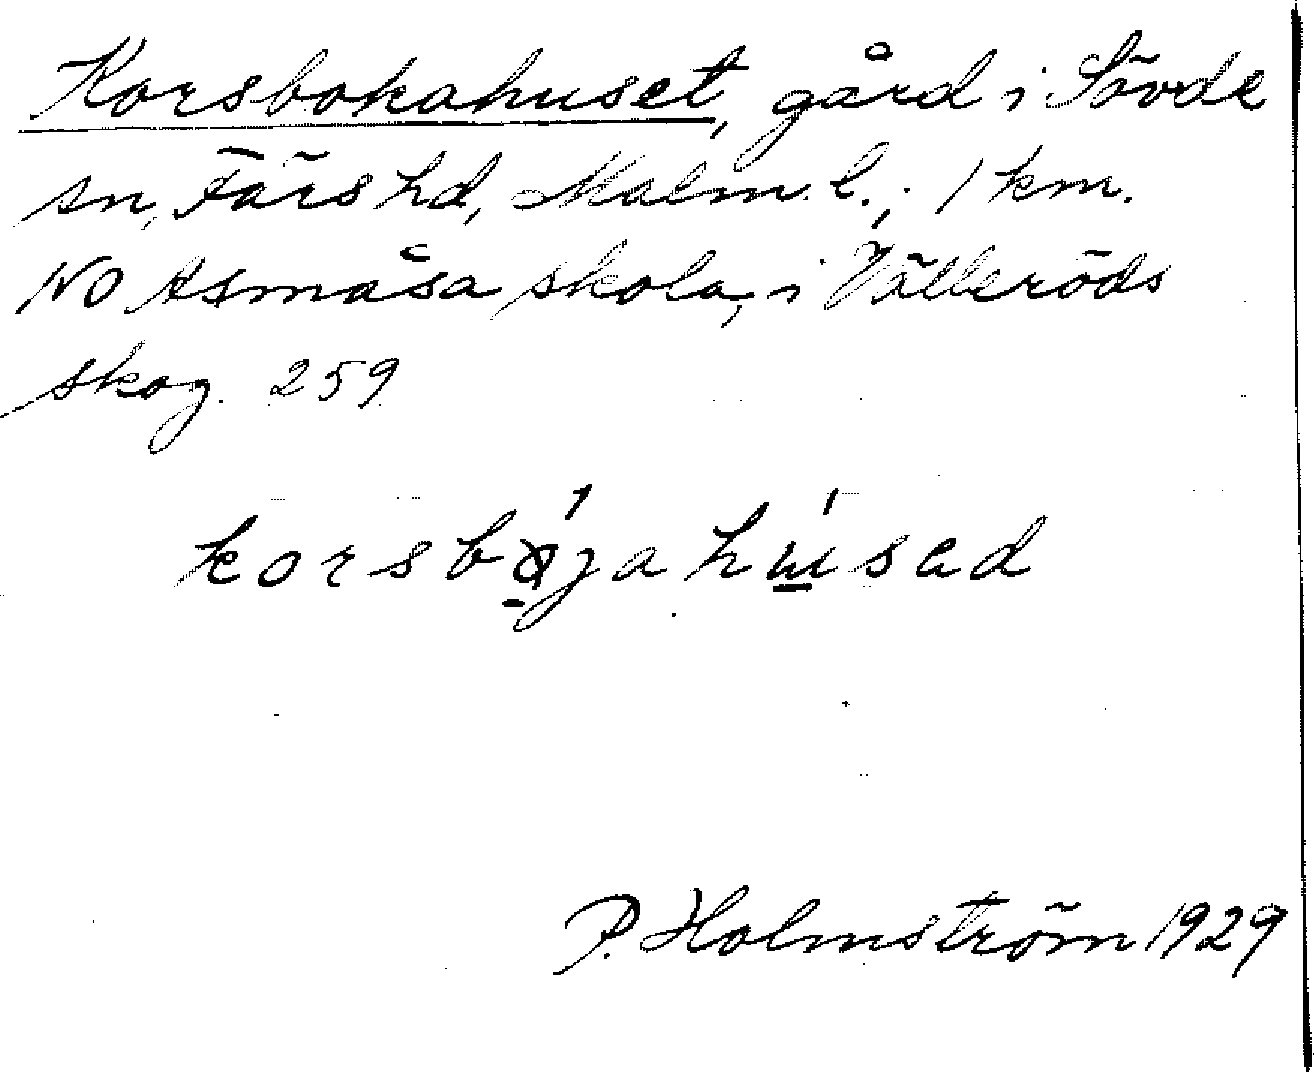 Korsbokahuset, gård i Sövde
sn, Färs hd, Malm. l.; 1 km.
NO Asmåsa skola, i Välleröds
skog. 259
korsbo̱ja hu̱sad
P. Holmström 1929